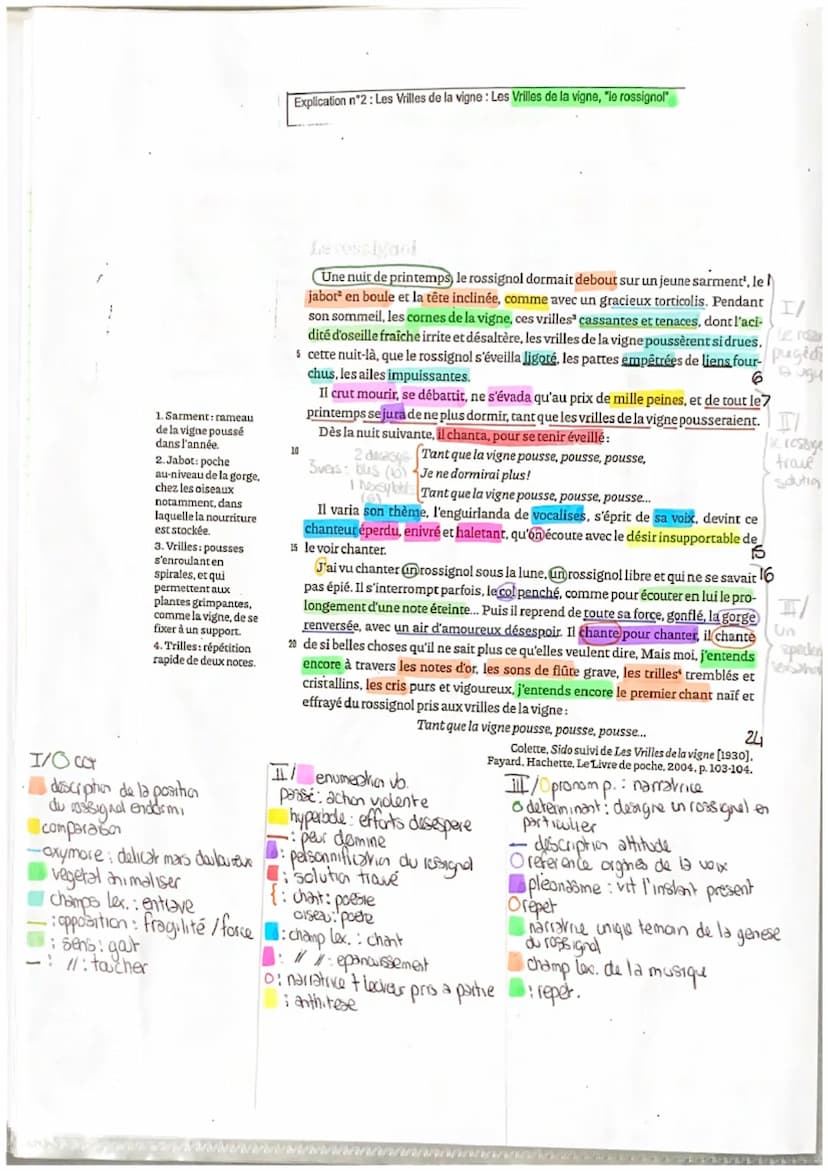 Explication n°2 : Les Vrilles de la vigne : Les Vrilles de la vigne, "le rossignol"
Le rossignol
Une nuit de printemps, le rossignol dormait debout sur un jeune sarment¹, le 1
jabot² en boule et la tête inclinée, comme avec un gracieux torticolis. Pendant
son sommeil, les cornes de la vigne, ces vrilles³ cassantes et tenaces, dont l'aci-
dité d'oseille fraîche irrite et désaltère, les vrilles de la vigne poussèrent si drues,
5 cette nuit-là, que le rossignol s'éveilla ligoté, les pattes empêtrées de liens four-
chus, les ailes impuissantes. 6
Il crut mourir, se débattit, ne s'évada qu'au prix de mille peines, et de tout le 7
printemps se jura de ne plus dormir, tant que les vrilles de la vigne pousseraient.
Dès la nuit suivante, il chanta, pour se tenir éveillé :
10 Tant que la vigne pousse, pousse, pousse,
Je ne dormirai plus !
Tant que la vigne pousse, pousse, pousse...
Il varia son thème, l'enguirlanda de vocalises, s'éprit de sa voix, devint ce
chanteur éperdu, enivré et haletant, qu'on écoute avec le désir insupportable de
15 le voir chanter. 15
J'ai vu chanter un rossignol sous la lune, un rossignol libre et qui ne se savait 16
pas épié. Il s'interrompt parfois, le col penché, comme pour écouter en lui le pro-
longement d'une note éteinte... Puis il reprend de toute sa force, gonflé, la gorge
renversée, avec un air d'amoureux désespoir. Il chante pour chanter, il chante
20 de si belles choses qu'il ne sait plus ce qu'elles veulent dire, Mais moi, j'entends
encore à travers les notes d'or, les sons de flûte grave, les trilles⁴ tremblés et
cristallins, les cris purs et vigoureux, j'entends encore le premier chant naïf et
effrayé du rossignol pris aux vrilles de la vigne :
Tant que la vigne pousse, pousse, pousse...
24
Colette, Sido suivi de Les Vrilles de la vigne [1930],
Fayard, Hachette, Le Livre de poche, 2004, p. 103-104.
1. Sarment : rameau
de la vigne poussé
dans l'année.
2. Jabot : poche
au-niveau de la gorge,
chez les oiseaux
notamment, dans
laquelle la nourriture
est stockée.
3. Vrilles : pousses
s'enroulant en
spirales, et qui
permettent aux
plantes grimpantes,
comme la vigne, de se
fixer à un support.
4. Trilles : répétition
rapide de deux notes.
3 vers :
I/
II/
le rossig
trouve
solution
III/
un
I/ O CCT
description de la position
du rossignol endormi
comparaison
oxymore : delicat mais douloureux
vegetal animaliser
champs lex. : entrave
: opposition : fragilité / force
: sens : gout
: // : toucher
II/ enumeration vb.
passé : action violente
hyperbole : efforts desespere
: peur domine
: personnification du rossignol
: solution trouvé
{ : chant : poesie
oiseau : poete
: champ lex. : chant
: // // : epanouissement
O : narratrice + lecteur pris a partie
: anthitese
III/ O pronom p. : narratrice
O determinant : designe un rossignol en
particulier
description attitude
O reference organes de la voix
pléonasme : vit l'instant present
O repet
narratrice unique temoin de la genese
du rossignol
champ lex. de la musique
: repet.